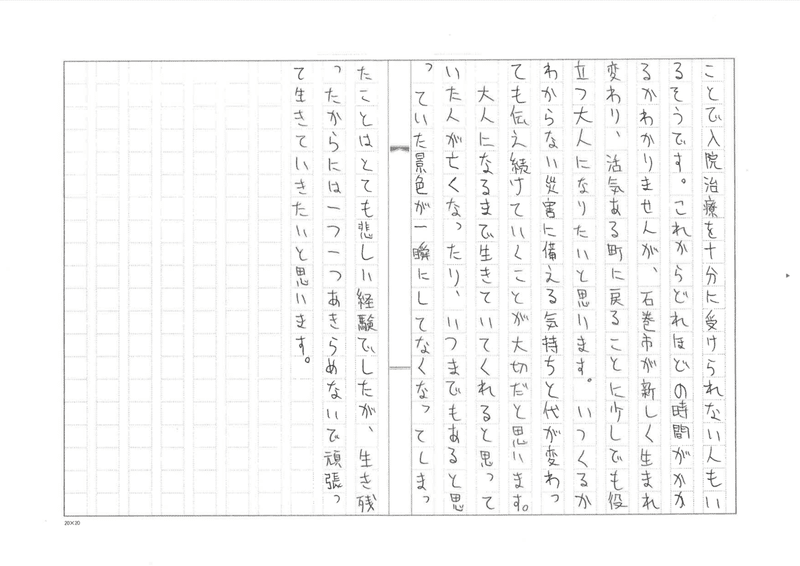 ことで入院治療を十分に受けられない人もい
るそうです。これからどれほどの時間がかか
るかわかりませんが、石巻市が新しく生まれ
変わり、活気ある町に戻ることに少しでも役
立つ大人になりたいと思います。いつくるか
わからない災害に備える気持ちと代が変わっ
ても伝え続けていくことが大切だと思います。
大人になるまで生きていてくれると思って
いた人が亡くなったり、いつまでもあると思
っていた景色が一瞬にしてなくなってしまっ
たことはとても悲しい経験でしたが、生き残
ったからには一つ一つあきらめないで頑張っ
て生きていきたいと思います。
20×20